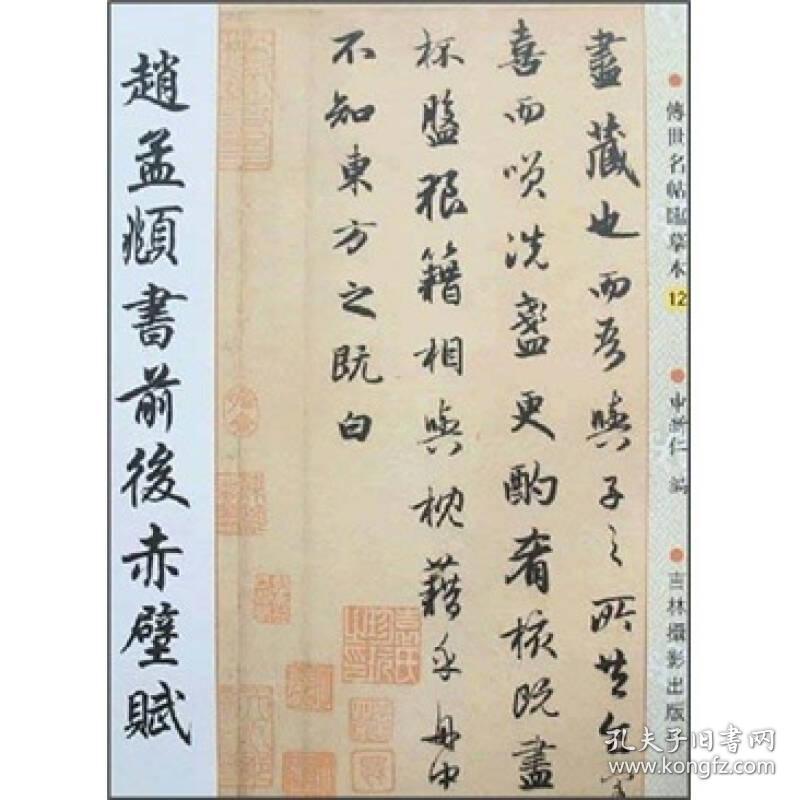 盡藏也而吾與子之所共食客
喜而唉洗盞更酌肴核既盡
杯盤狼籍相與枕藉乎舟中
不知東方之既白
趙孟頫書前後赤壁賦
傳世名帖臨摹本 12
申新仁 編
吉林攝影出版
孔夫子旧书网
www.kongfz.com